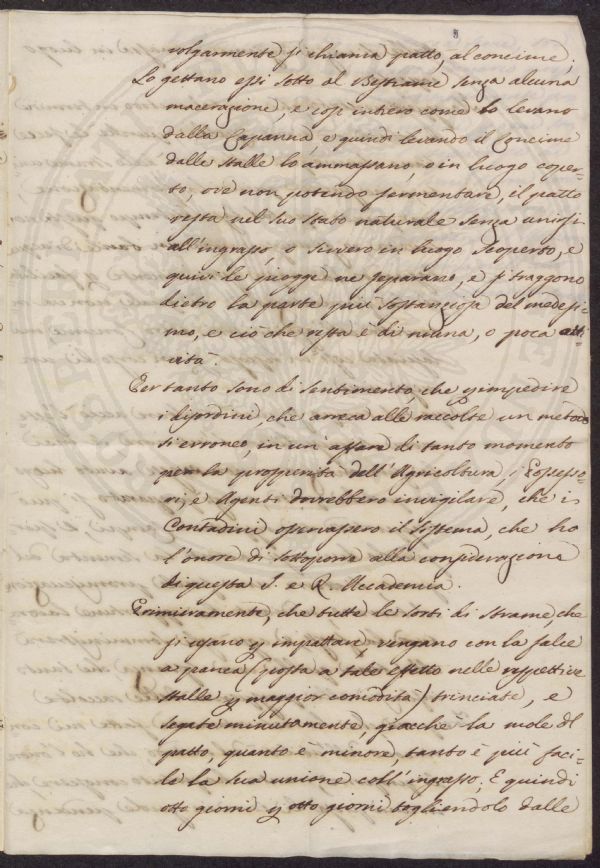 volgarmente si chiama patto, al concime;
Lo gettano essi sotto al Bestiame senza alcuna
macerazione, e così intiero come lo levano
dalla Capanna, e quindi levando il Concime
dalle stalle lo ammassano, o in luogo coper-
to, ove non potendo fermentare, il patto
resta nel suo stato naturale senza unirsi
all'ingrasso, o sivvero in luogo scoperto, e
quivi le piogge ne separano, e si traggono
dietro la parte più sostanziosa del medesi-
mo, e ciò che resta è di niuna, o poca atti-
vità.
Per tanto sono di sentimento, che p impedire
i disordini, che arreca alle raccolte un metodo
sì erroneo, in un' affare di tanto momento
per la prosperità dell'Agricoltura, i Possesso-
ri, e Agenti dovrebbero invigilare, che i
Contadini osservassero il sistema, che ho
l'onore di sottoporre alla considerazione
di questa I. e R. Accademia.
Primieramente, che tutte le sorti di strame, che
si usano p impattare, vengano con la falce
a panca (posta a tale effetto nelle respettive
stalle p maggior comodità) trinciate, e
segate minutamente, giacchè la mole del
patto, quanto è minore, tanto è più faci-
le la sua unione coll'ingrasso; E quindi
otto giorni p otto giorni togliendolo dalle